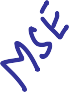 MSÉ